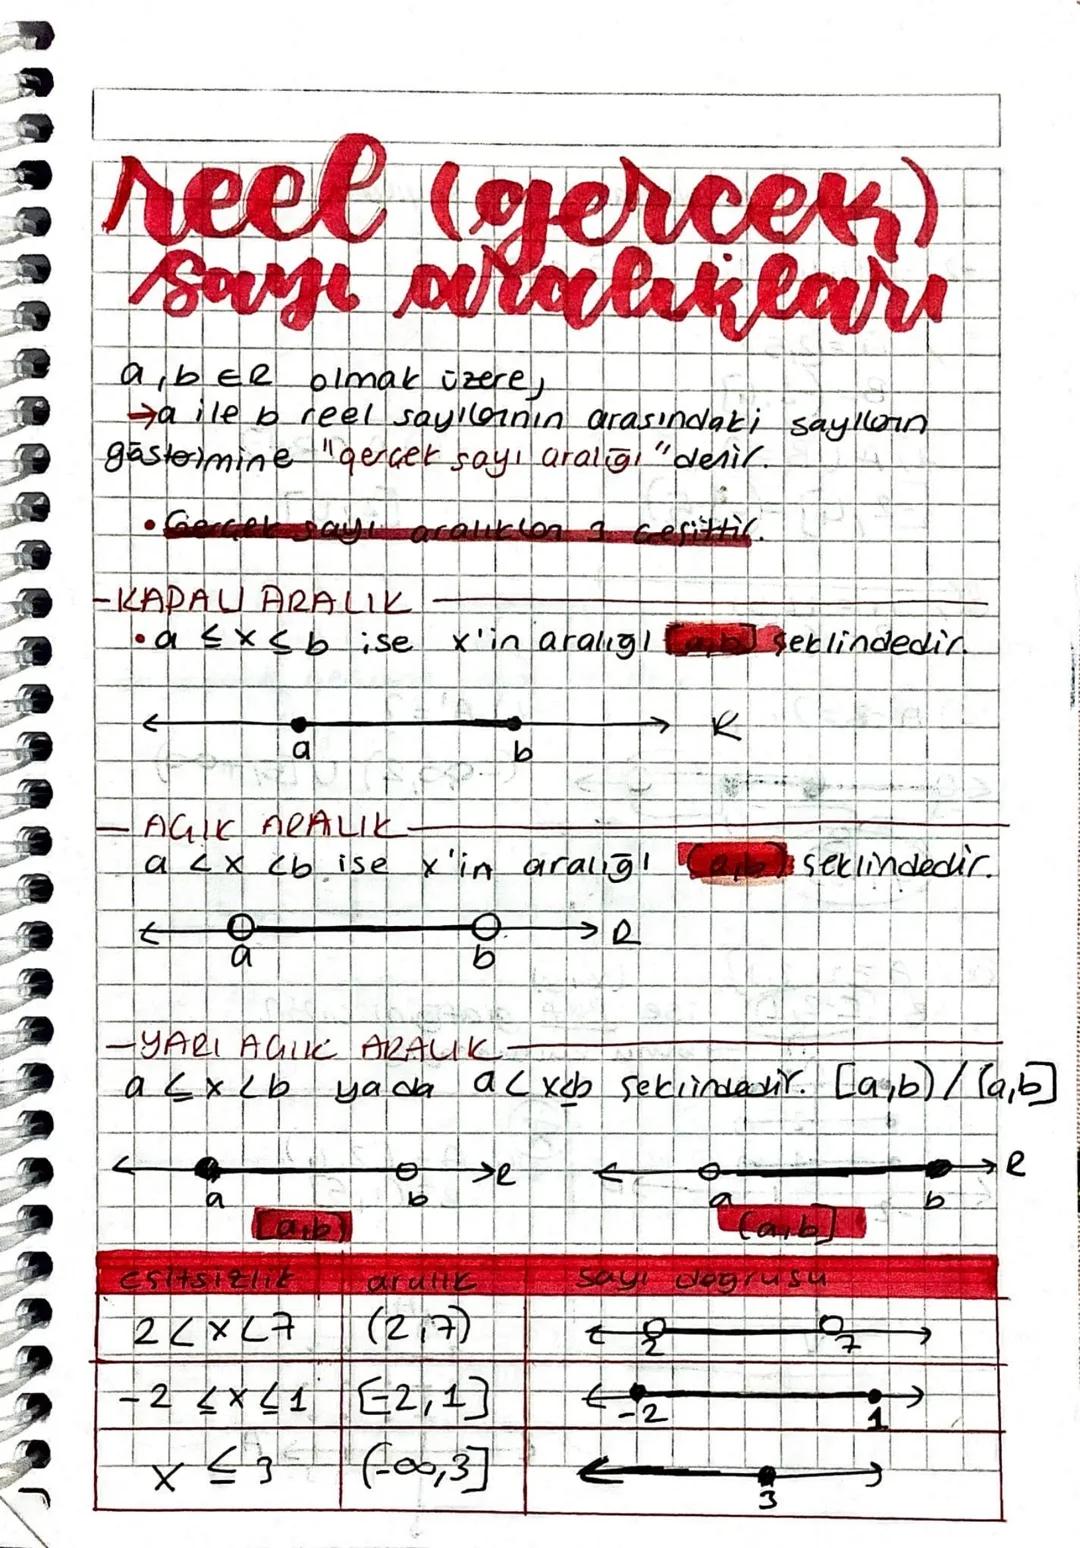 reel (gercek)
sayı aralıkları
a,b ∈ R olmak üzere,
→a ile b reel sayılarının arasındaki sayıların
gösterimine "gerçek sayı aralığı" denir.
• Gerçek sayı aralıkları 3 çeşittir.
-KAPALI ARALIK
• a ≤ x ≤ b ise x'in aralığı [a,b] şeklindedir.
R
a b
- AÇIK ARALIK
a < x < b ise x'in aralığı (a,b) şeklindedir.
R
a b
-YARI AÇIK ARALIK
a ≤ x < b ya da a < x ≤ b şeklindedir. [a,b) / (a,b]
R R
a b a b
[a,b) (a,b]
eşitsizlik aralık sayı doğrusu
2 < x < 7 (2,7) 2 7
-2 ≤ x ≤ 1 [-2,1] -2 1
x ≤ 3 (-∞,3] 3